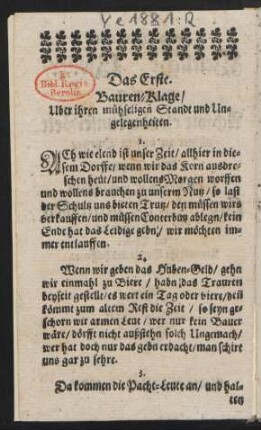 Ye 1881:R.
Bibl. Regia
Berolin.
Das Erste.
Bauren/Klage/
Uber ihren mühseligen Standt und Un-
gelegenheiten.
1.
ACh wie elend ist unser Zeit/ allhier in die-
sem Dorffe/ wenn wir das Korn ausdre-
schen heut/ und wollens Morgen worffen
und wollens brauchen zu unserm Nutz/ so last
der Schultz uns bieten Trutz/ den müssen wirs
verkauffen/ und müssen ablegn/ kein
Ende hat das Leidige gebn/ wir möchten im-
mer entlauffen.
2.
Wenn wir geben das Huben-Geld/ gehn
wir einmahl zu Biere/ habn das Trauren
beyseit gestellt/ es wert ein Tag oder viere/
kömmt zum altem Rest die Zeit/ so seyn ge-
schorn wir armen Leut/ wer nur kein Bauer
wäre/ dörfft nicht außstehn solch Ungemach/
wer hat doch nur das gebn erdacht/ man schirt
uns gar zu sehre.
3.
Da kommen die Pacht-Leute an/ und hal-
ten